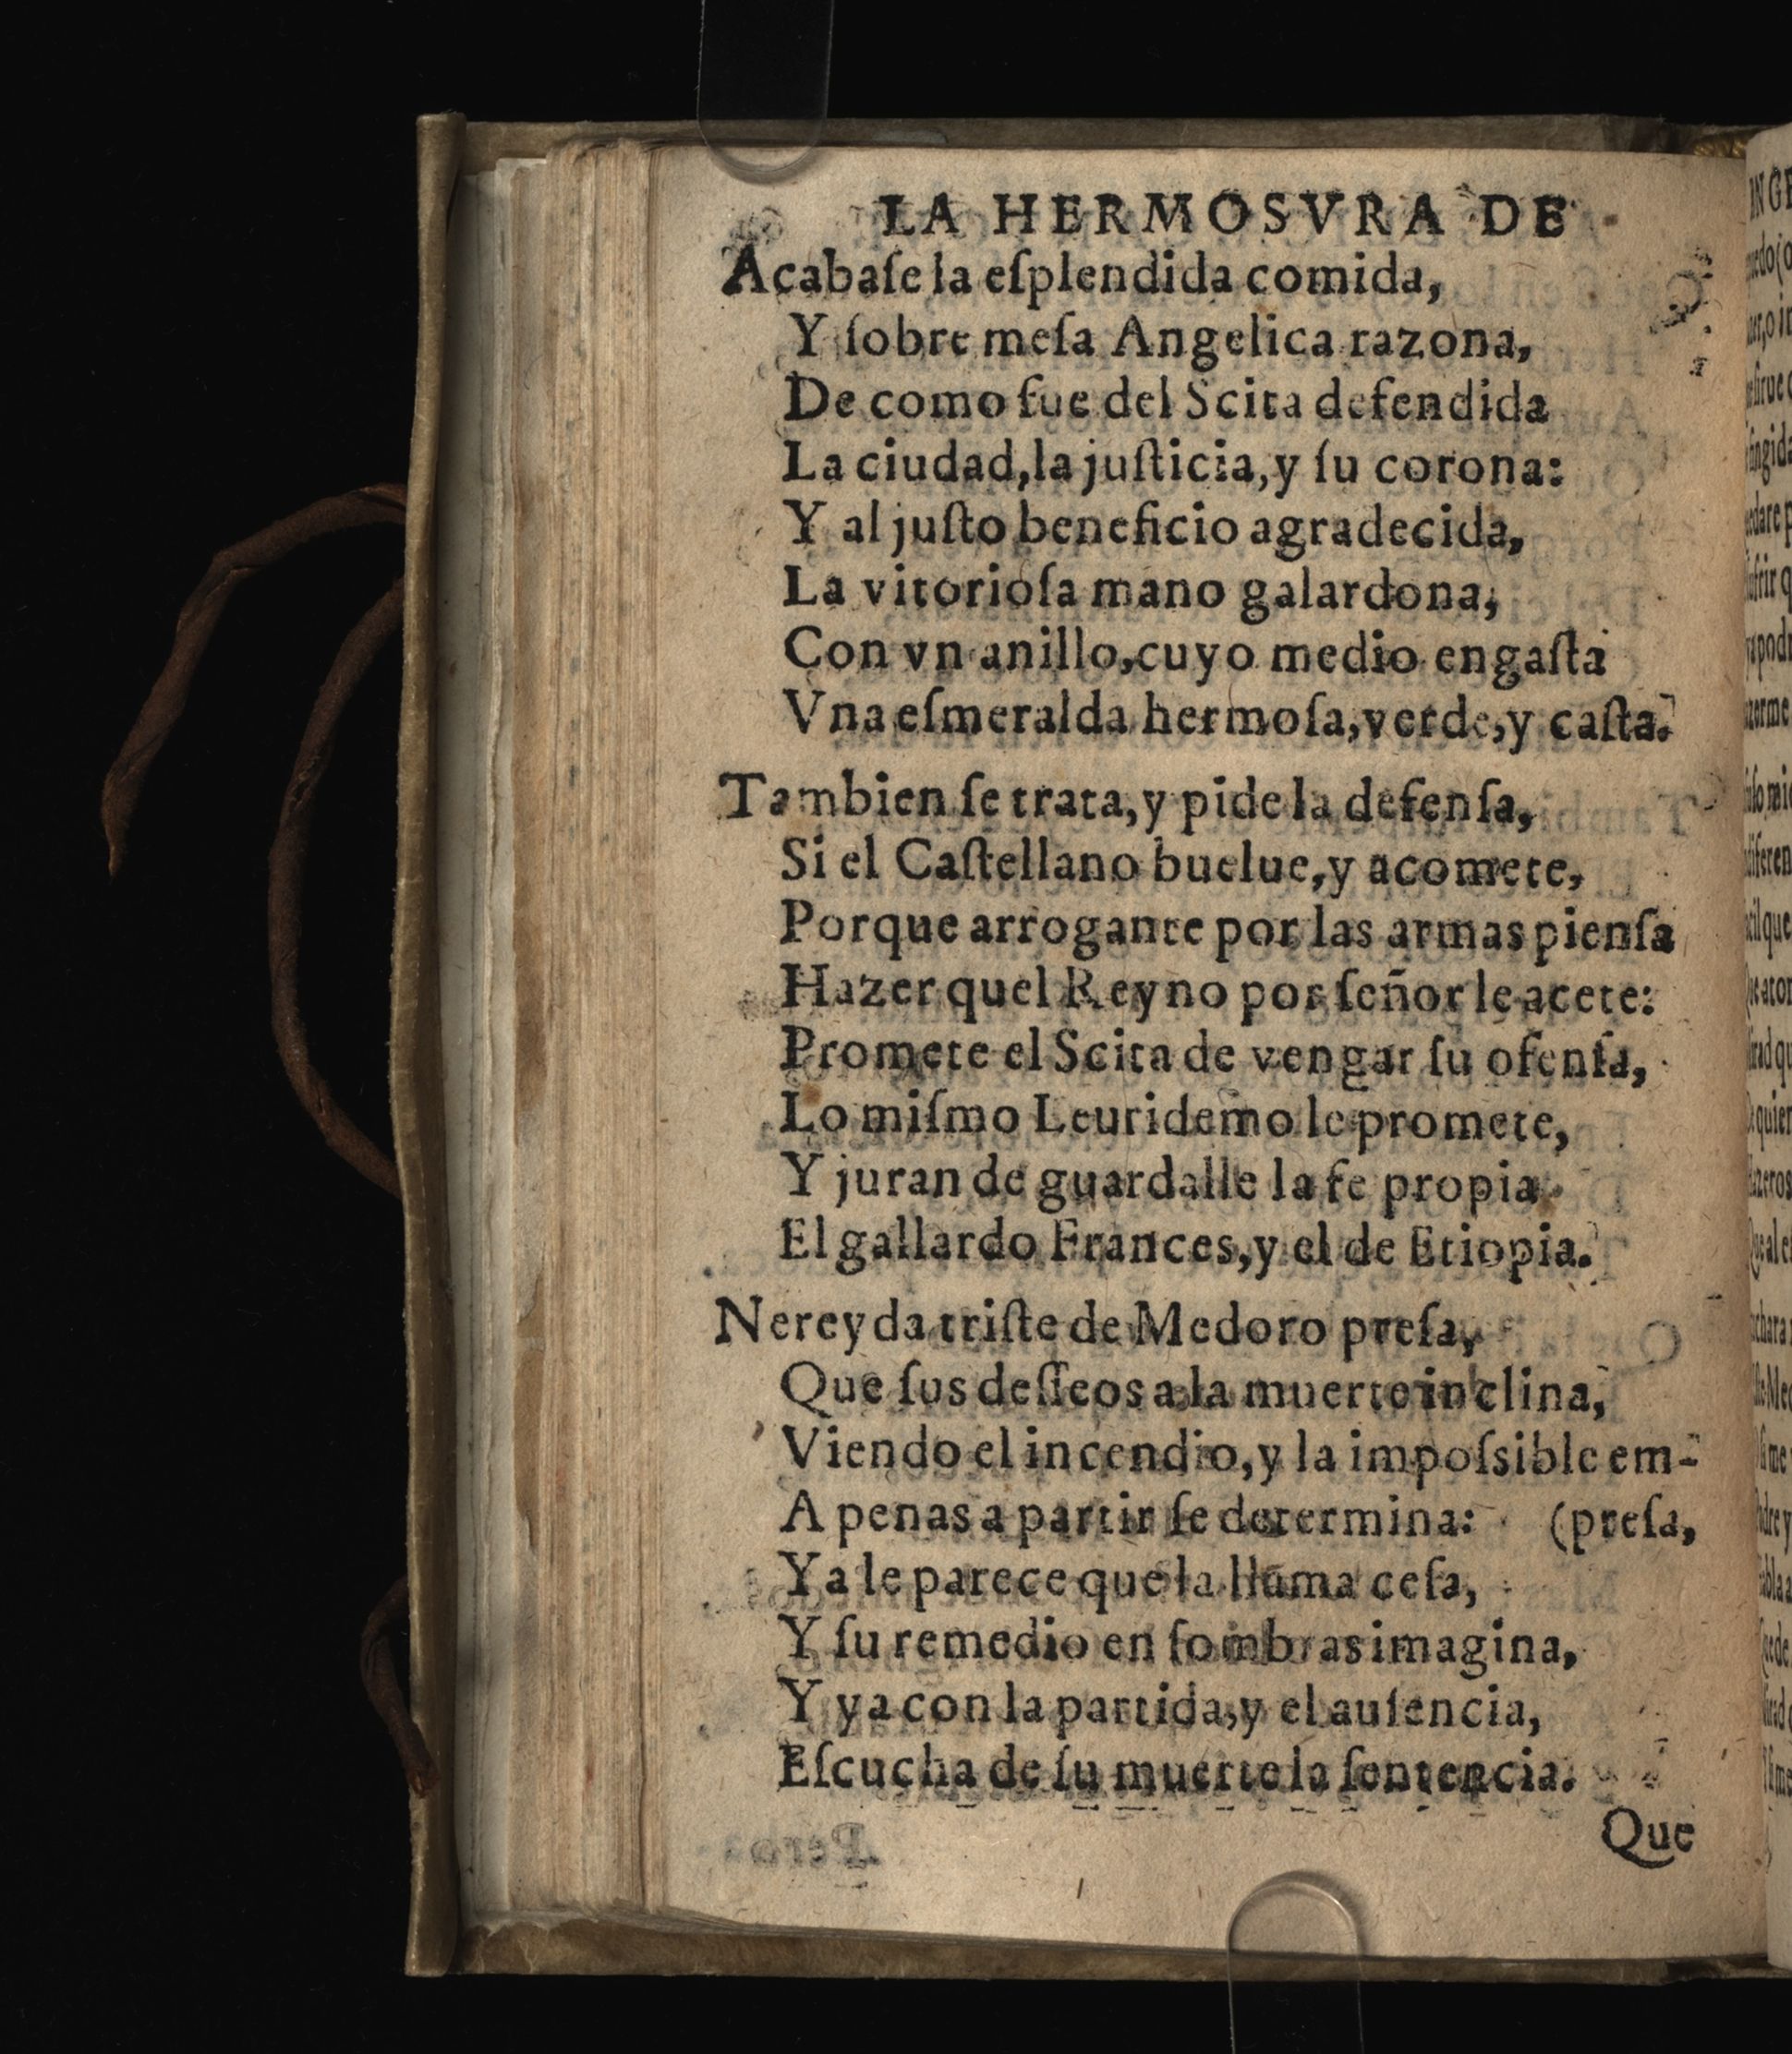 LA HERMOSVRA DE
Acabaſe la eſplendida comida,
Y ſobre meſa Angelica razona,
De como fue del Scita defendida
La ciudad, la juſticia, y ſu corona:
Y al juſto beneficio agradecida,
La vitorioſa mano galardona,
Con vn anillo, cuyo medio engaſta
Vna eſmeralda hermoſa, verde, y caſta.
Tambien ſe trata, y pide la defenſa,
Si el Caſtellano buelue, y acomete,
Porque arrogante por las armas pienſa
Hazer quel Reyno por ſeñor le acete:
Promete el Scita de vengar ſu ofenſa,
Lo miſmo Leuridemo le promete,
Y juran de guardalle la fe propia
El gallardo Frances, y el de Etiopia.
Nereyda triſte de Medoro preſa,
Que ſus deſſeos a la muerte inclina,
Viendo el incendio, y la impoſsible em-
A penas a partir ſe determina: (preſa,
Ya le parece que la llama ceſa,
Y ſu remedio en ſombras imagina,
Y ya con la partida, y el auſencia,
Eſcucha de ſu muerte la ſentencia.
Que